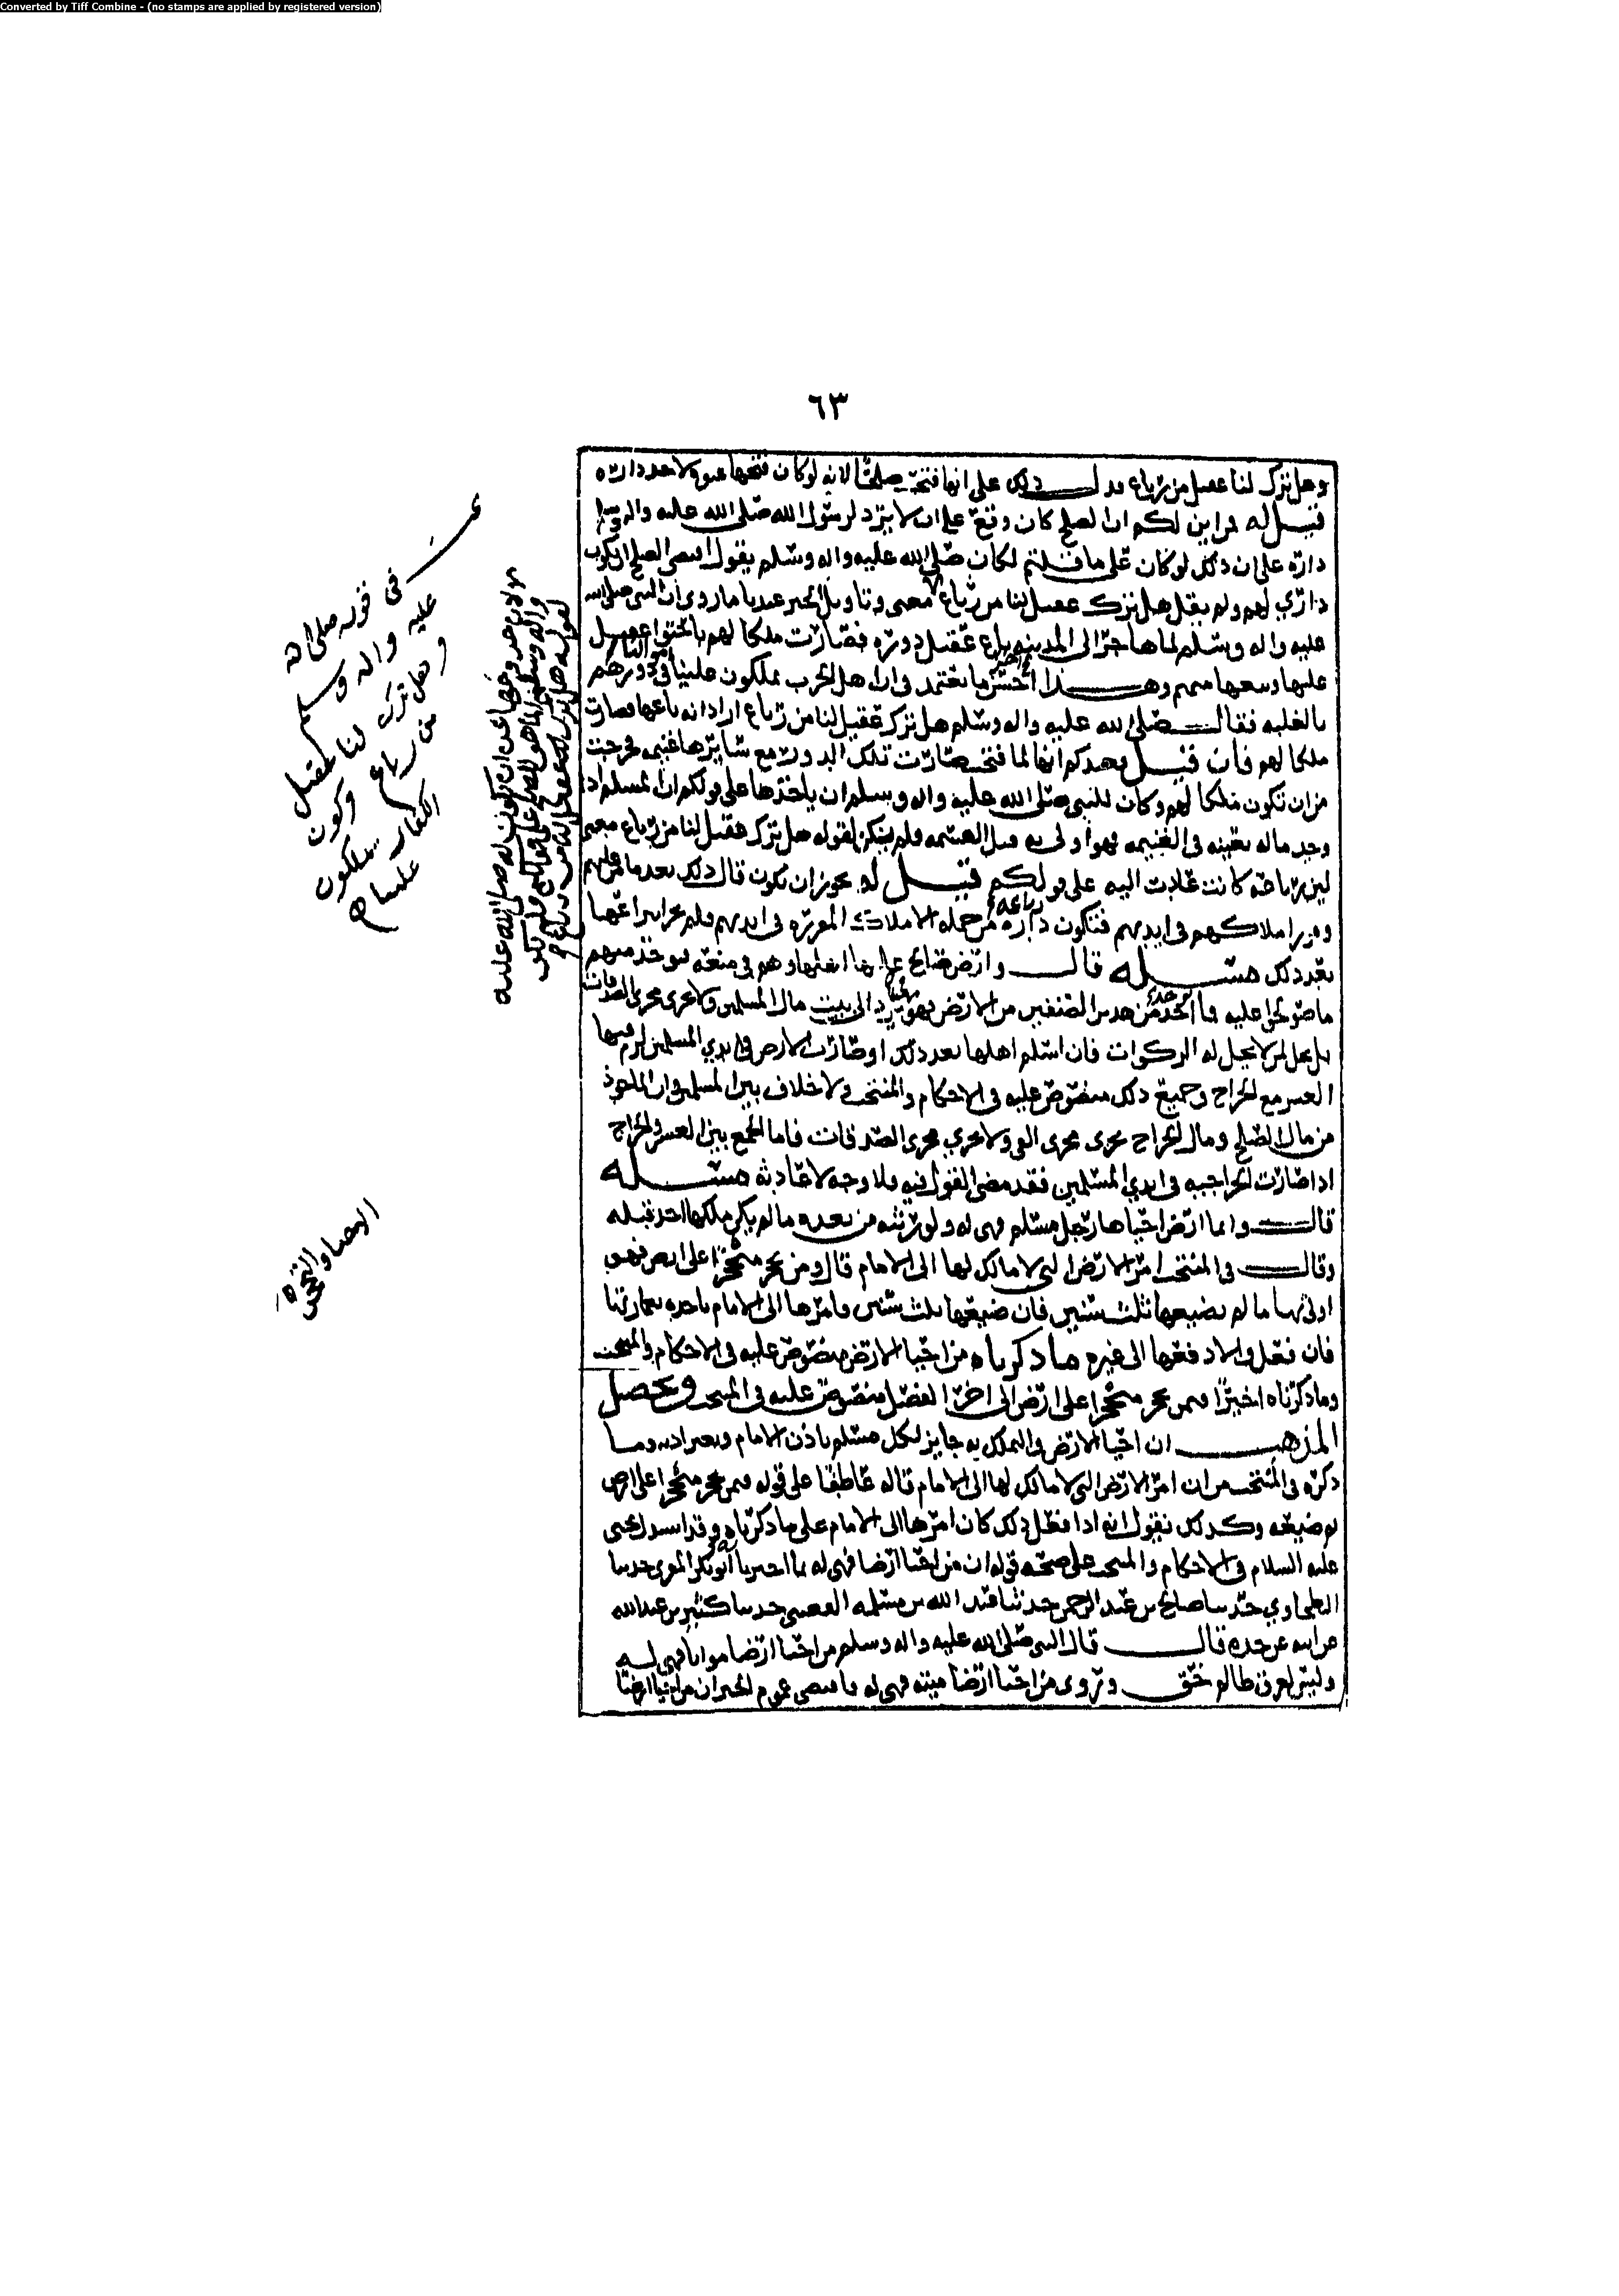 Converted by Tiff Combine - (no stamps are applied by registered version)
٦٣
وهل ترك لنا عقيل من رباع فدل ذلك على انها فتحت صلحًا لانه لو كان فتحها عنوة لاخذ داره
قيل له من اين لكم ان الصلح كان وقع على ان لا يرد لرسول الله صلى الله عليه واله وسلم
داره على ان ذلك لو كان على ما قلتم لكان صلى الله عليه واله وسلم يقول اقتضى الصلح ان يكون
داري لهم ولم يقل هل ترك عقيل لنا من رباع معنى وتاويل الخبر عندنا ما روي ان النبي صلى الله
عليه واله وسلم لما هاجر الى المدينه باع عقيل دوره فصارت ملكا لهم
عليها وبيعها منهم وهذا احسن ما يعتمد في ان اهل الحرب يملكون علينا
بالغلبه فقال صلى الله عليه واله وسلم هل ترك عقيل لنا من رباع اراد انه باعها فصارت
ملكا لهم فان قيل فعندكم انها لما فتحت صارت تلك الدور مع سائرها غنيمه فخرجت
من ان تكون ملكا لهم وكان للنبي صلى الله عليه واله وسلم ان ياخذها على قولكم ان المسلم اذا
وجد ماله بعينه في الغنيمه فهو اولى به قبل القسمه فلم يكن لقوله هل ترك عقيل لنا من رباع معنى
لان رباعه كانت عادت اليه على قولكم قيل له يجوز ان يكون قال ذلك بعد ما من عليهم
وقرر املاكهم في ايديهم فتكون داره من جمله الاملاك المقرره في ايديهم فلم يجز انتزاعها
بعد ذلك مسئله قال وارض صالح عليها اهلها وهم في منعه فيوخذ منهم
ما صولحوا عليه وما اخذ من هذين الصنفين من الارض فهو الى بيت مال المسلمين ولا يجرى مجرى الصدقات
بل يحل لمن لا يحل له الزكوات فان اسلم اهلها بعد ذلك او صارت الارض في ايدي المسلمين لزم فيها
العشر مع الخراج وجميع ذلك منصوص عليه في الاحكام والمنتخب ولا خلاف بين المسلمين ان الماخوذ
من مال الصلح ومال الخراج يجرى مجرى الفي ولا يجري مجرى الصدقات فاما الجمع بين العشر والخراج
اذا صارت الخراجيه في ايدي المسلمين فقد مضى القول فيه فلا وجه لاعادته مسئله
قال وايما ارض احياها رجل مسلم فهي له ولورثته من بعده ما لم يكن ملكها احد قبله
وقال في المنتخب امر الارض التي لا مالك لها الى الامام قال ومن تحجر متحجرا على ارض فهو
اولى بها ما لم يضيعها ثلث سنين فان ضيعها ثلث سنين فامرها الى الامام ياخذه بعمارتها
فان فعل والا دفعها الى غيره ما ذكرناه من احيا الارض منصوص عليه في الاحكام والمنتخب
وما ذكرناه اخيرًا فيمن تحجر متحجرا على ارض الى اخر الفصل منصوص عليه في المنتخب وتحصيل
المذهب ان احيا الارض والتملك به جايز لكل مسلم باذن الامام وبغير اذنه وما
ذكره في المنتخب من ان امر الارض التي لا مالك لها الى الامام قاله عاطفا على قوله فيمن تحجر متحجرا على ارض
ثم ضيعه وكذلك نقول انه اذا فعل ذلك كان امرها الى الامام على ما ذكرناه وقد استدل يحيى
عليه السلام في الاحكام والمنتخب على صحة قوله ان من احيا ارضا فهي له بما اخبرنا ابو بكر المقري حدثنا
الطحاوي حدثنا صالح بن عبد الرحمن حدثنا عبد الله بن مسلمه القعنبي حدثنا كثير بن عبد الله
عن ابيه عن جده قال قال النبي صلى الله عليه واله وسلم من احيا ارضا مواتا فهي له
وليس لعرق ظالم حق وتروى من احيا ارضا ميته فهي له فاقتضى عموم الخبر ان من احيا ارضا
في قوله صلى الله
عليه واله وسلم
وهل ترك لنا عقيل
من رباع وكون
الكفار يملكون
علينا